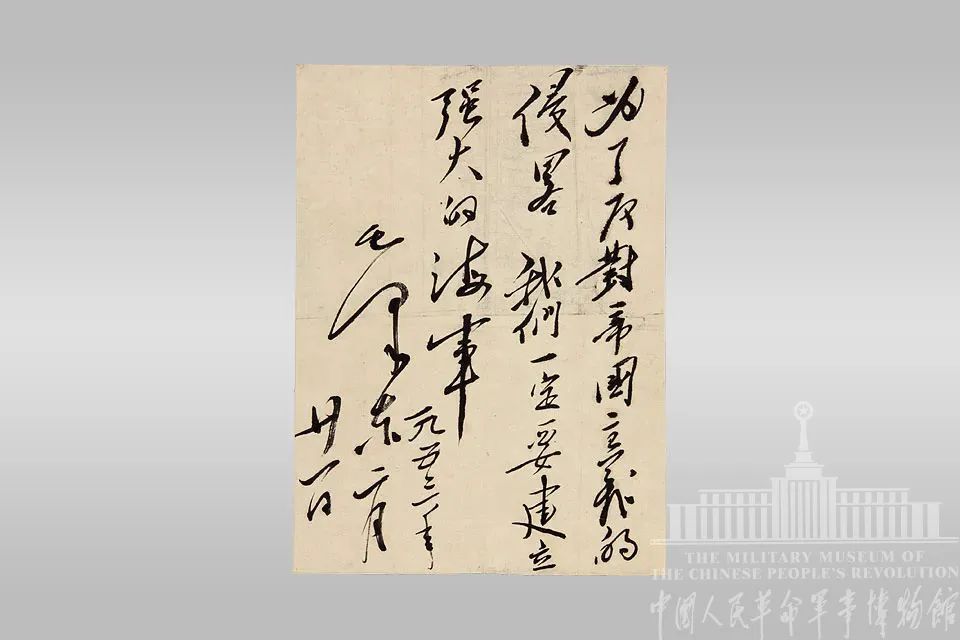 为了反對帝國主義的
侵畧 我們一定要建立
强大的海軍
一九五三年
毛澤东 二月
廿一日
THE MILITARY MUSEUM OF
THE CHINESE PEOPLE'S REVOLUTION
中國人民革命軍事博物館